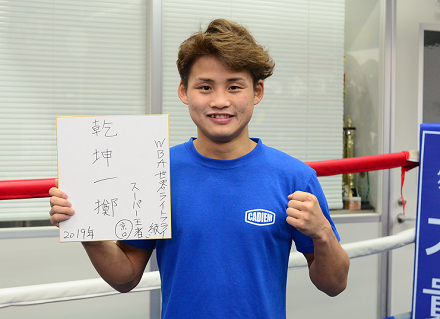 乾坤一擲
WBA世界ライトフライ級
スーパー王者
京口
2019年
CADIEM